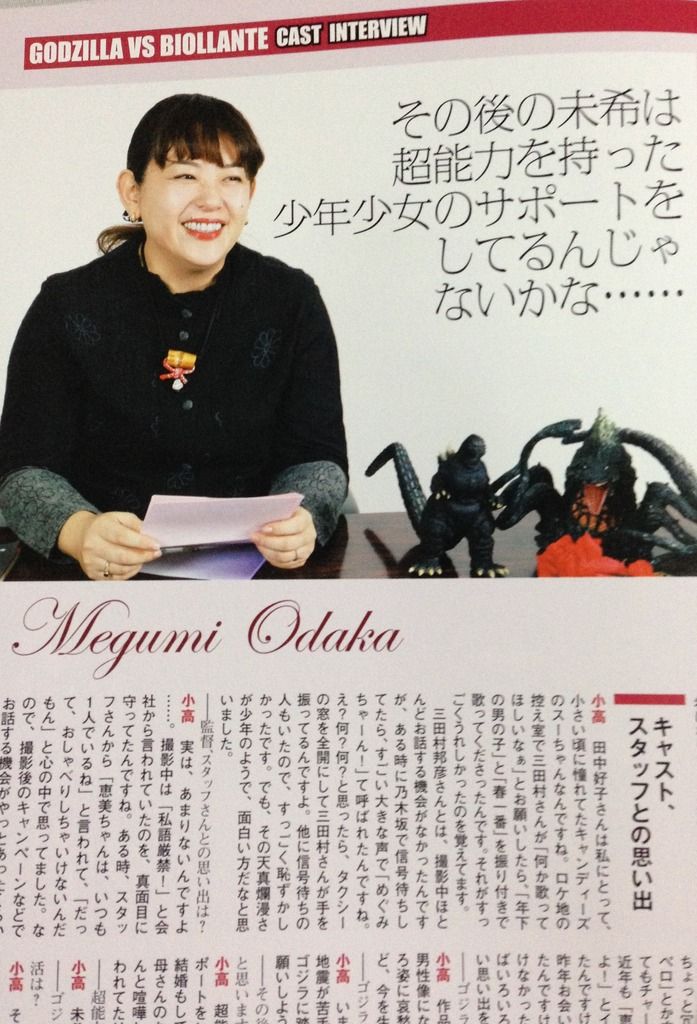 GODZILLA VS BIOLLANTE CAST INTERVIEW
その後の未希は
超能力を持った
少年少女のサポートを
してるんじゃ
ないかな……
Megumi Odaka
キャスト、
スタッフとの思い出
小高　田中好子さんは私にとって、
小さい頃に憧れてたキャンディーズ
のスーちゃんなんですね。ロケ地の
控え室で三田村さんが「何か歌って
ほしいなぁ」とお願いしたら、「年下
の男の子」と「春一番」を振り付きで
歌ってくださったんです。それがすっ
ごくうれしかったのを覚えてます。
三田村邦彦さんとは、撮影中ほと
んどお話する機会がなかったんです
が、ある時に乃木坂で信号待ちし
てたら、すごい大きな声で「めぐみ
ちゃーん！」て呼ばれたんですね。
え？何？何？と思ったら、タクシー
の窓を全開にして三田村さんが手を
振ってるんですよ。他に信号待ちの
人もいたので、すっごく恥ずかし
かったです。でも、その天真爛漫さ
が少年のようで、面白い方だなと思
いました。
――監督、スタッフさんとの思い出は？
小高　実は、あまりないんですよ
……。撮影中は「私語厳禁！」と会
社から言われていたのを、真面目に
守ってたんですね。ある時、スタッ
フさんから「恵美ちゃんは、いつも
1人でいるね」と言われて、「だっ
て、おしゃべりしちゃいけないんだ
もん」と心の中で思ってました。な
ので、撮影後のキャンペーンなどで
お話する機会がやっと
ちょっと
ペロ」とか
てもチャー
近年も「恵
よ！」とイ
たんですけ
昨年お会い
たんですけ
けなかった
ばいろいろ
い思い出を
――ゴジラ
小高　作品
男性像にな
ろ姿に哀愁
ど、今を生
――ゴジラ
小高　いま
地震が苦手
ゴジラに踏
願いしよう
――その後
と思います
小高　超能
ポートを
結婚もして
母さんの
んと喧嘩し
われてた
――超能
小高　未
――ゴジ
活は？
小高　そ